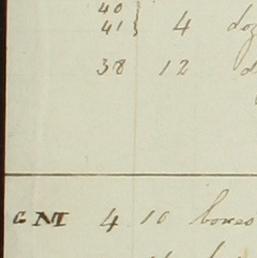 40
41 } 4 doz
38 12 d
GM 4 10 boxes